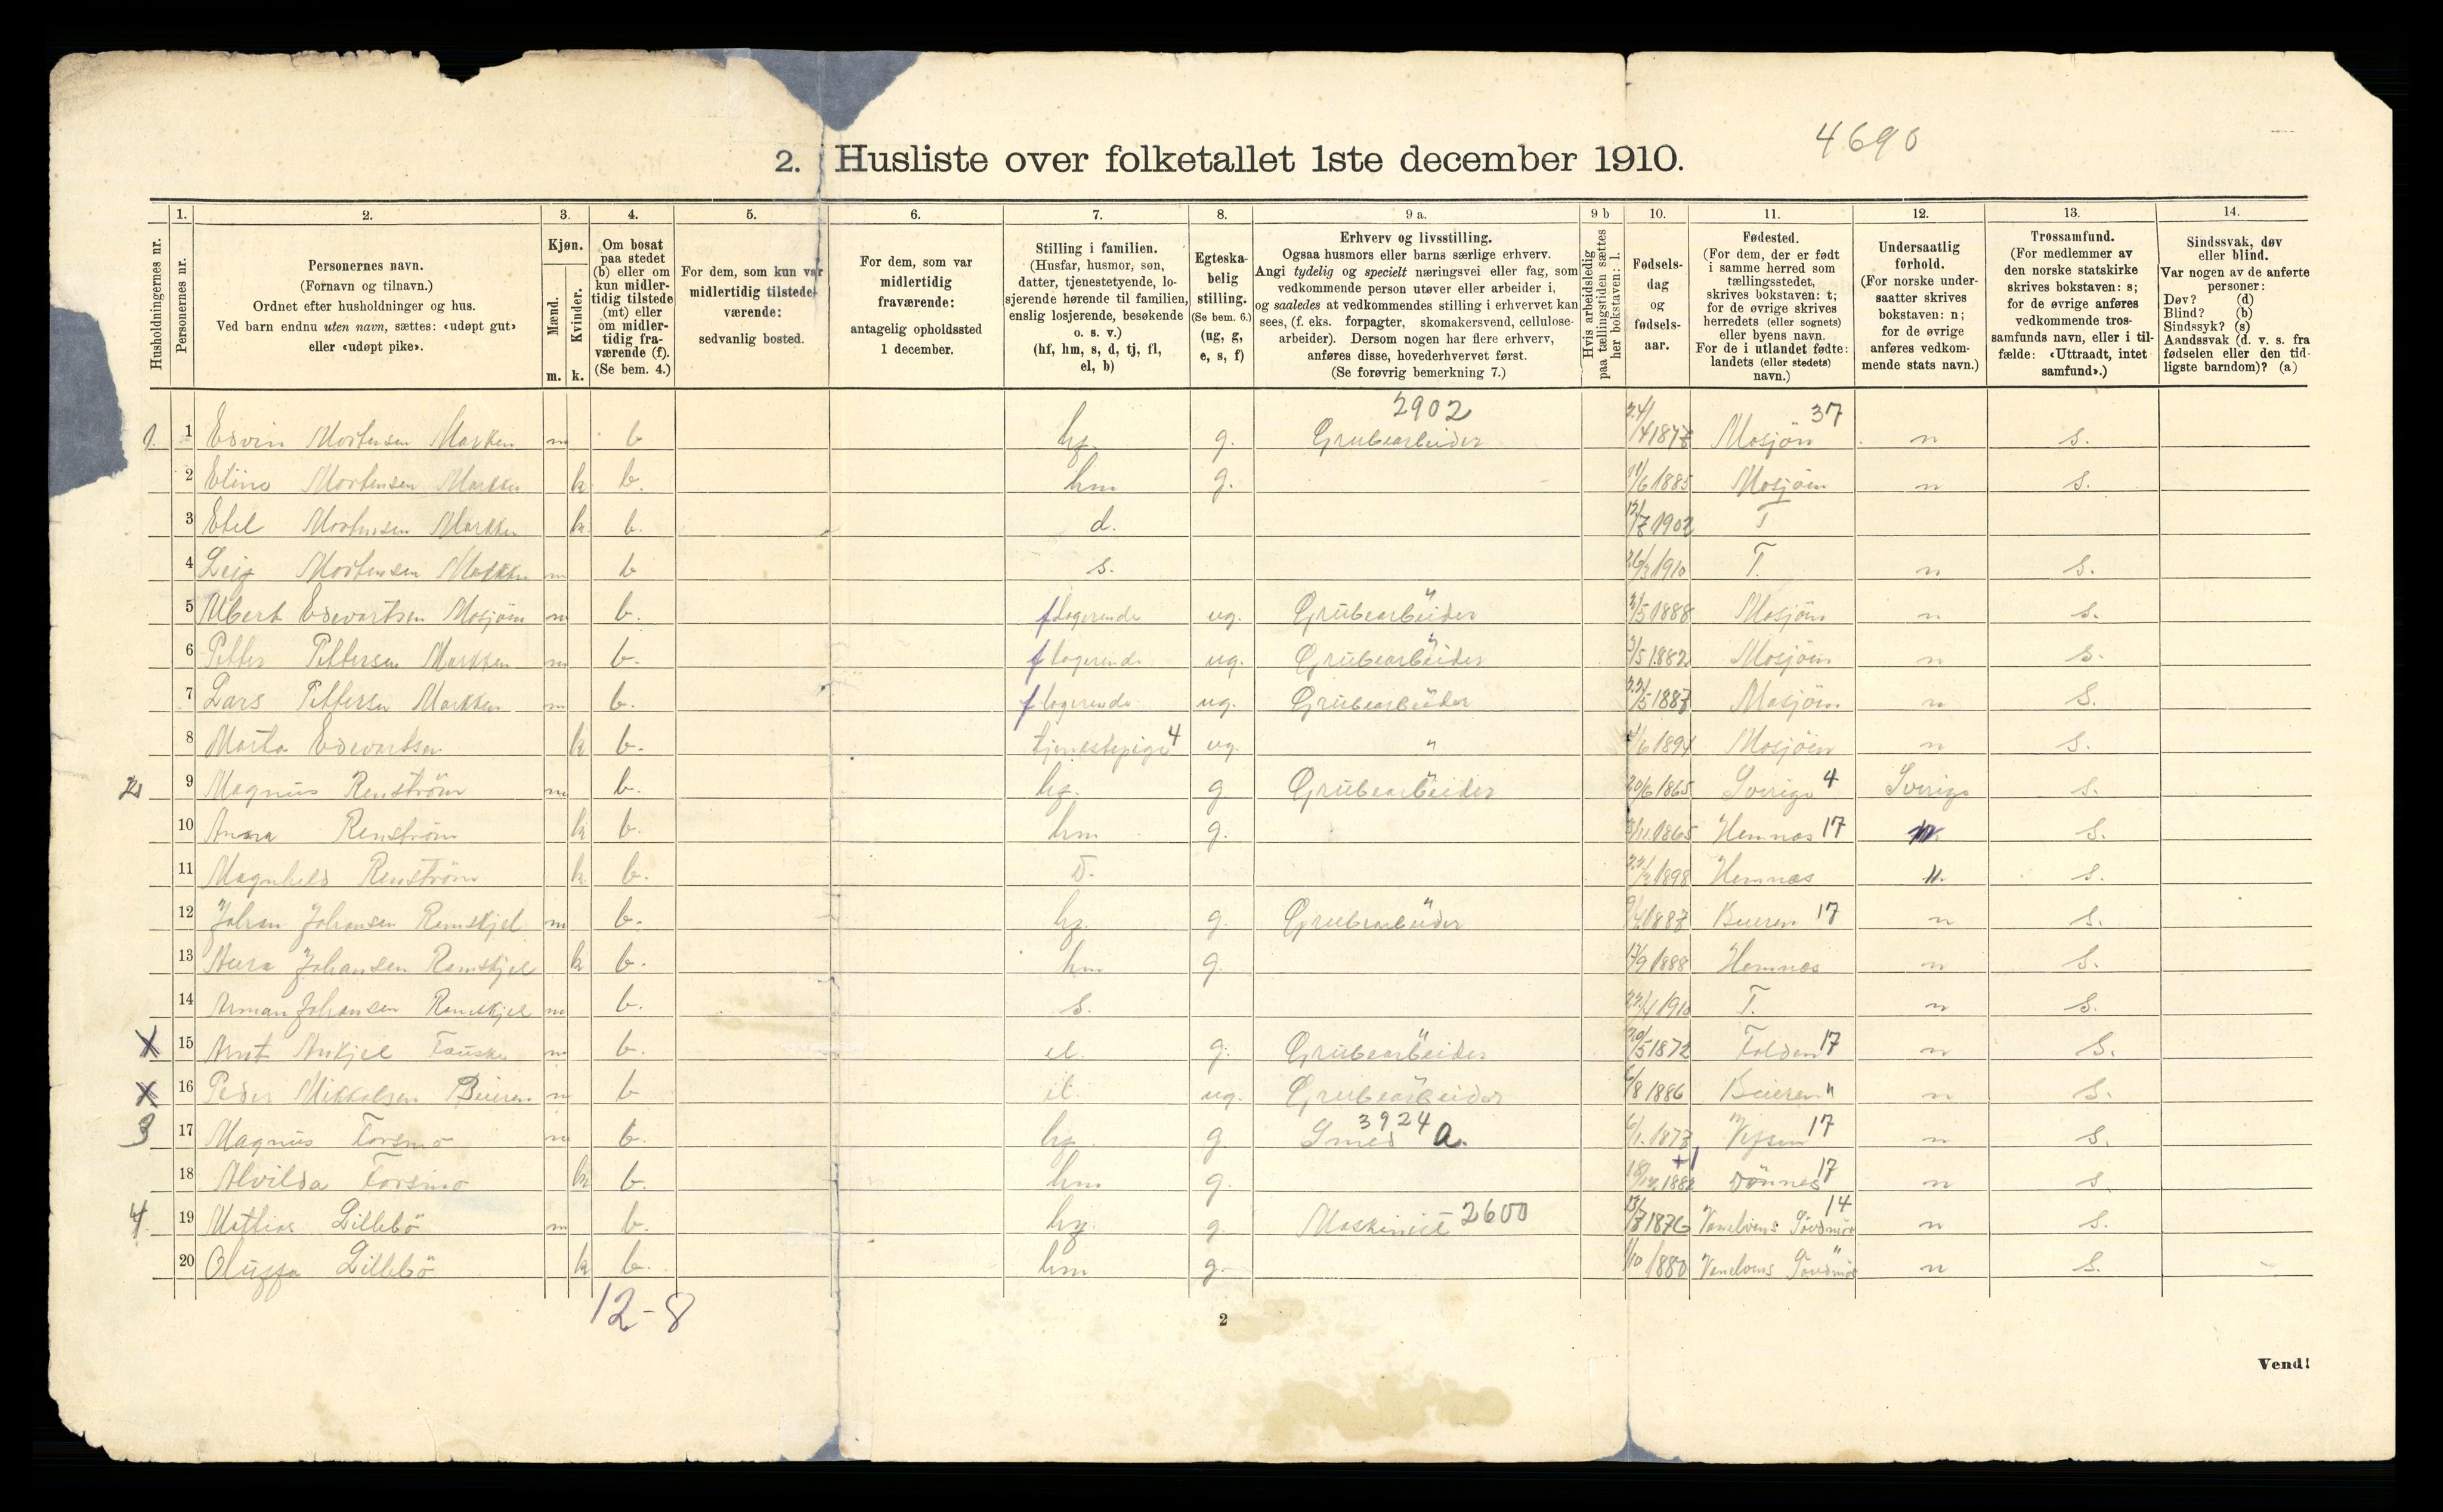 4690
2. Husliste over folketallet 1ste december 1910.
Husholdningernes nr.
1. Personernes nr.
2. Personernes navn. (Fornavn og tilnavn.) Ordnet efter husholdninger og hus. Ved barn endnu uten navn, sættes: «udøpt gut» eller «udøpt pike».
3. Kjøn. Mænd. m. Kvinder. k.
4. Om bosat paa stedet (b) eller om kun midlertidig tilstede (mt) eller om midlertidig fraværende (f). (Se bem. 4.)
5. For dem, som kun var midlertidig tilstedeværende: sedvanlig bosted.
6. For dem, som var midlertidig fraværende: antagelig opholdssted 1 december.
7. Stilling i familien. (Husfar, husmor, søn, datter, tjenestetyende, losjerende hørende til familien, enslig losjerende, besøkende o. s. v.) (hf, hm, s, d, tj, fl, el, b)
8. Egteskabelig stilling. (Se bem. 6.) (ug, g, e, s, f)
9 a. Erhverv og livsstilling. Ogsaa husmors eller barns særlige erhverv. Angi tydelig og specielt næringsvei eller fag, som vedkommende person utøver eller arbeider i, og saaledes at vedkommendes stilling i erhvervet kan sees, (f. eks. forpagter, skomakersvend, cellulosearbeider). Dersom nogen har flere erhverv, anføres disse, hovederhvervet først. (Se forøvrig bemerkning 7.)
9 b Hvis arbeidsledig paa tællingstiden sættes her bokstaven: l.
10. Fødselsdag og fødselsaar.
11. Fødested. (For dem, der er født i samme herred som tællingsstedet, skrives bokstaven: t; for de øvrige skrives herredets (eller sognets) eller byens navn. For de i utlandet fødte: landets (eller stedets) navn.)
12. Undersaatlig forhold. (For norske undersaatter skrives bokstaven: n; for de øvrige anføres vedkommende stats navn.)
13. Trossamfund. (For medlemmer av den norske statskirke skrives bokstaven: s; for de øvrige anføres vedkommende trossamfunds navn, eller i tilfælde: «Uttraadt, intet samfund».)
14. Sindssvak, døv eller blind. Var nogen av de anførte personer: Døv? (d) Blind? (b) Sindssyk? (s) Aandssvak (d. v. s. fra fødselen eller den tidligste barndom)? (a)
2902 37
1. 1 Edvin Mortensen Markken m b hf. g. Grubearbeider 24/4 Mosjön n s.
2 Eline Mortensen Markken k b. hm g. 11/6 1885 Mosjöen n s.
3 Etel Mortensen Markken k b. d. 1902 T
4 Leif Mortensen Markken m b s. 26/3 1910 T. n s.
5 Albert Edevartsen Mosjöen m b. f logerende ug. Grubearbeider " 1888 Mosjöen n s.
6 Petter Pettersen Markken m b. f logerende ug. Grubearbeider " 1882 Mosjöen n s.
7 Lars Pettersen Markken m b. f logerende ug. Grubearbeider " 22/5 1887 Mosjöen n s.
8 Marta Edevartsen k b. tjenestepige 4 ug. " Mosjöen n s.
2 9 Magnus Renström m b. hf. g Grubearbeider " 20/6 1865 Sverige 4 Sverige s.
10 Anna Renström k b. hm g. 1865 Hemnæs 17 n. s.
11 Magnhild Renström k b. D. 1898 Hemnæs n. s.
12 Johan Johansen Remskjel m b. hf. g. Grubearbeider " 1887 Beieren 17 n s.
13 Johansen Remskjel k b. hm g. 17/9 1888 Hemnæs n s.
14 Arman Johansen Remskjel m b. s. 1910 T. n s.
X 15 Arnt Fauske m b. el. g. Grubearbeider " 20/5 1872 Folden 17 n s.
X 16 Peder Mikkalsen Beieren m b el. ug. Grubearbeider " 6/8 1886 Beieren " n s.
3 17 Magnus Forsmo m b. hf. g. Smed 3924 a. Vefsen 17 n s.
18 Alvilda Forsmo k b. hm g. 18/12 1882 +1 Dönnes 17 n s.
4. 19 Mathias Lillebö m b. hf. g. Maskinist 2600 1876 Vanelvens Söndmör 14 n s.
20 Oluffa Lillebö k b. hm g. 1/10 1880 Vanelvens Söndmör " n s.
12-8
2
Vend!